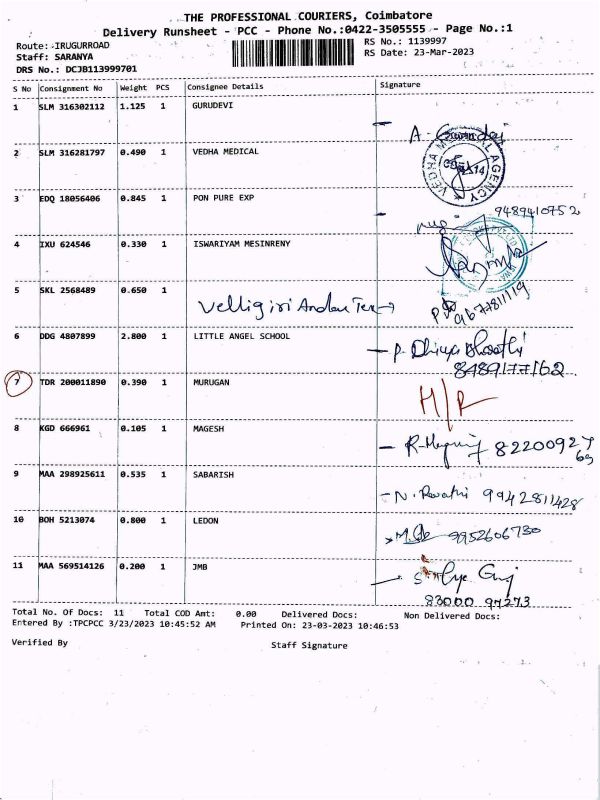 THE PROFESSIONAL COURIERS, Coimbatore
Delivery Runsheet - PCC - Phone No.:0422-3505555 - Page No.:1
Route: IRUGURROAD
RS No.: 1139997
Staff: SARANYA
RS Date: 23-Mar-2023
DRS No.: DCJB113999701
S No Consignment No Weight PCS Consignee Details Signature
1 SLM 316302112 1.125 1 GURUDEVI
2 SLM 316281797 0.490 1 VEDHA MEDICAL
VEDHA MEDICAL AGENCY
3 EDQ 18056406 0.845 1 PON PURE EXP
9489410752
4 IXU 624546 0.330 1 ISWARIYAM MESINRENY
5 SKL 2568489 0.650 1
Velligiri Andav Tex
6 DDG 4807899 2.800 1 LITTLE ANGEL SCHOOL
P. Dhivya Bharathi
8489177162
7 TDR 200011890 0.390 1 MURUGAN H/R
8 KGD 666961 0.105 1 MAGESH
8220092769
9 MAA 298925611 0.535 1 SABARISH
N. Revathi 9942811428
10 BOH 5213074 0.800 1 LEDON
9952606730
11 MAA 569514126 0.200 1 JMB
83000 97273
Total No. Of Docs: 11 Total COD Amt: 0.00 Delivered Docs: Non Delivered Docs:
Entered By :TPCPCC 3/23/2023 10:45:52 AM Printed On: 23-03-2023 10:46:53
Verified By
Staff Signature